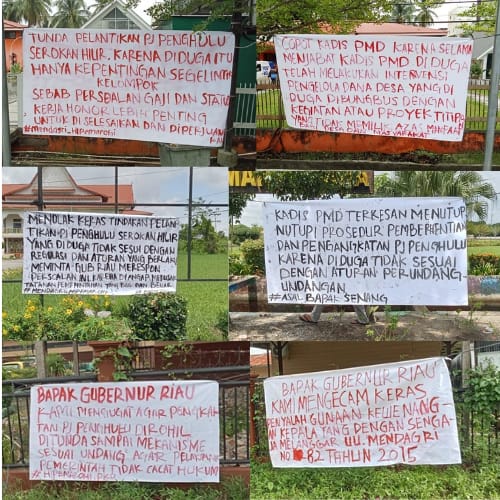 TUNDA PELANTIKAN PJ PENGHULU
SEROKAN HILIR, KARENA DI DUGA ITU
HANYA KEPENTINGAN SEGELINTIR
KELOMPOK
SEBAB PERSOALAN GAJI DAN STATUS
KERJA HONOR LEBIH PENTING
UNTUK DI SELESAIKAN DAN DI PERJUANG
KAN
COPOT KADIS PMD KARENA SELAMA
MENJABAT KADIS PMD DI DUGA
TELAH MELAKUKAN INTERVENSI
PENGELOLA DANA DESA YANG DI
DUGA DI BUNGBUS DENGAN
KEGIATAN ATAU PROYEK TITIPAN
YANG TIDAK MEMILIK AZAS MANFAAT
MENOLAK KERAS TINDAKAN PELAN-
TIKAN PJ PENGHULU SEROKAN HILIR
YANG DI DUGA TIDAK SESUAI DENGAN
REGULASI DAN ATURAN YANG BERLAKU
MEMINTA GUB RIAU MERESPON
KADIS PMD TERKESAN MENUTUP
NUTUPI PROSEDUR PEMBERHENTIAN
DAN PENGANGKATAN PJ PENGHULU
KARENA DI DUGA TIDAK SESUAI
DENGAN ATURAN PERUNDANG-
UNDANGAN
#ASAL BAPAK SENANG
BAPAK GUBERNUR RIAU
KAMI MENGINGAT AGAR PENGKA
TAN PJ PENGHULU DI ROHIL
DI TUNDA SAMPAI MEKANISME
SESUAI UNDANG AGAR PELAYANAN
PEMERINTAH TIDAK CACAT HUKUM
BAPAK GUBERNUR RIAU
KAMI MENGECAM KERAS
PENYALAH GUNAAN KEWENANG-
AN KEPALA YANG DENGAN SENGA-
JA MELANGGAR UU. MENDAGRI
NO 82 TAHUN 2015